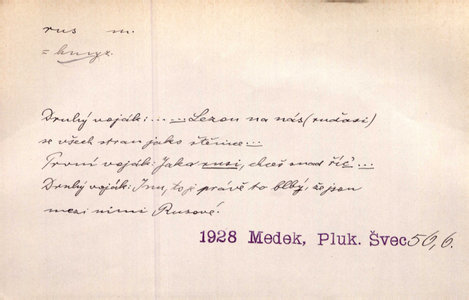 rus m.
= hmyz.
Druhý voják: … … Lezou na nás (rudoši)
se všech stran jako štěnice…
První voják: Jako rusi, chceš snad říc'…
Druhý voják: Inu, to je právě to blbý, že jsou
mezi nimi Rusové.
1928 Medek, Pluk. Švec 56, 6.